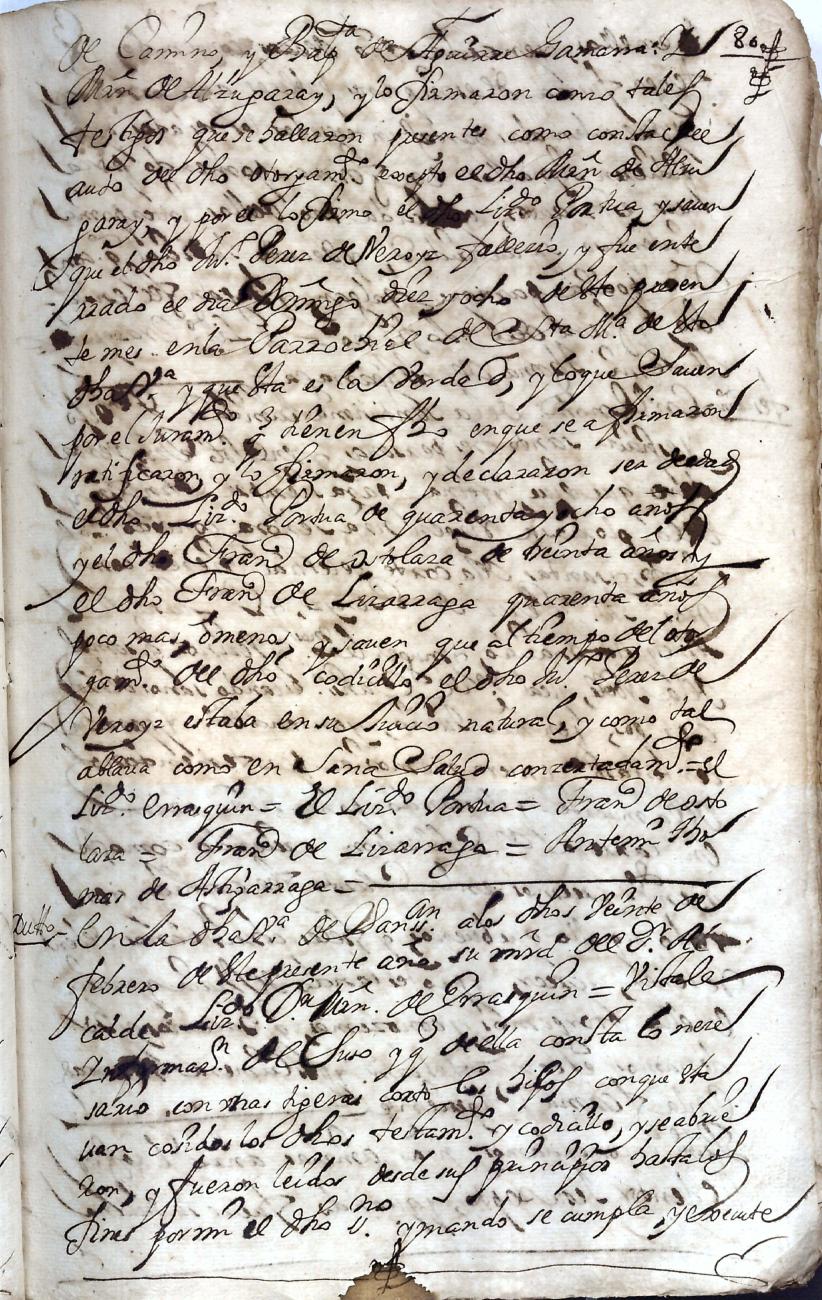 80
de Camino, y Bap.ta de Aguirre Gamarra. Y
Mrn de Alzugaray, y lo firmaron como tales
testigos que se hallaron presentes como consta del
auto del dho otorgam.to excepto el dho Mrn de Alzu
garay, y por el lo firmo el dho Liz.do Portua, y saven
que el dho Ju.o Perez de Veroyz fallecio, y fue ente
rrado el dia Domingo diez y ocho de este presen
te mes en la Parrochial de Sta M.a de esta
dha V.a y que esta es la Verdad, y lo que Saven
por el Juram.to q tienen fho en que se afirmaron
ratificaron, y lo firmaron, y declararon ser de edad
el dho Liz.do Portua de quarenta y ocho años
y el dho Fran.co de ostolaza de treinta años, y
el dho Fran.co de Lizarraga quarenta años
poco mas, ô menos, y saven que al tiempo del otor
gam.to del dho codicillo el dho Ju.o Perez de
Veroyz estaba en su Juicio natural, y como tal
ablava como en Sana Salud concertadam.te = El
Liz.do Errasquin = El Liz.do Portua = Fran.co de osto
laza = Fran.co de Lizarraga = Antemi Tho
mas de Astigarraga =
Dutto
En la dha V.a de a los dhos Veinte de
febrero de este presente año su mrd del S.r Al
calde Liz.do D.n Mrn. de Errasquin = Vista la
Informaz.n de Suso y q de ella consta lo nece
sario con unas tigeras corto los hilos con que esta
van cosidos los dhos testam.to y codicillo, y se abrie
ron, y fueron leidos desde sus principios hasta los
fines por mi el dho s.no y mando se cumpla, y execute